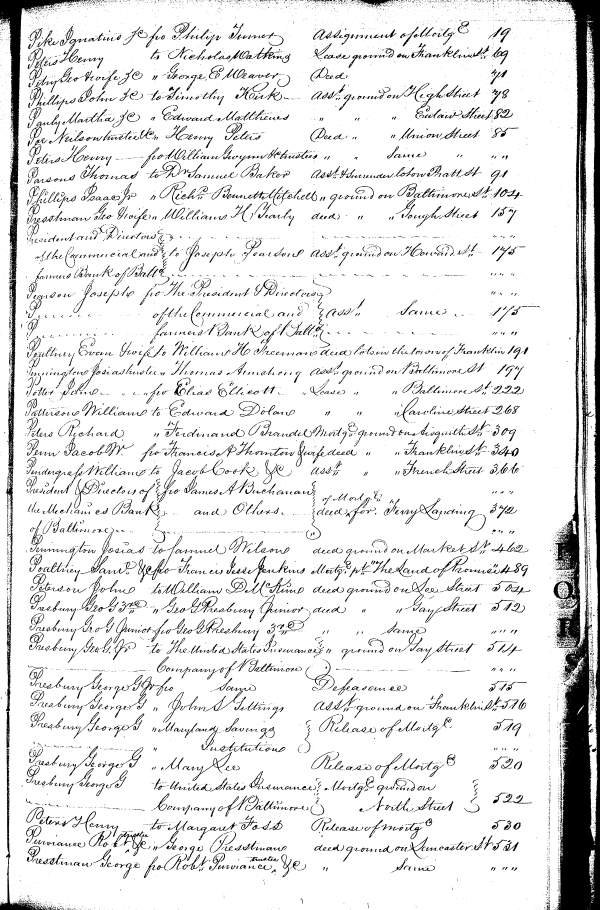 Pike Ignatius &c fro Philip Turner Assignment of Mortg.e 19
Peters Henry to Nicholas Watkins Lease ground on Franklin St. 69
Petry Geo & wife &c " George E Weaver Deed 71
Phillips John &c to Timothy Kirk Ass.t ground on High Street 78
Pauly Martha &c " Edward Matthews " " " Eutaw Street 82
Poe Neilson trustee &c " Henry Peters Deed " " Union Street 85
Peters Henry fro William Gwynn &c trustees " " Same " " "
Parsons Thomas to Dr Samuel Baker Ass.t & Surrender lot on Pratt St 91
Phillips Isaac Jr " Rich.d Bennett Mitchell " ground on Baltimore St. 104
Presstman Geo & wife " William H. Bearly deed " " Gough Street 157
President and Directors
of the Commercial and to Joseph Pearson ass.t ground on Howard St. 175
farmers Bank of Balt.o " " "
Pearson Joseph fro The President & Directors
of the Commercial and ass.t " Same 175
farmers Bank of Balt.o " " "
Poultney Evan & wife to William H. Freeman deed lots in the town of Franklin 191
Pennington Josias trustee " Thomas Armstrong ass.t ground on Baltimore St 197
Potter Jane fro Elias Ellicott Lease " " Baltimore St. 222
Patterson William to Edward Dolan " " " Caroline Street 268
Peters Richard " Ferdinand Brandel Mortg.e ground on Aisquith St. 309
Penn Jacob W. fro Francis A Thornton & wife deed " " Franklin St. 340
Pendergrass William to Jacob Cook &c ass.t " " French Street 366
President & Directors of fro James A Buchanan " " "
the Mechanics Bank and Others of Mortg.e deed for Ferry Landing 372
of Baltimore " " "
Pennington Josias to Samuel Wilson deed ground on Market St. 462
Poultney Sam.l &c fro Francis Jesse Jenkins Mortg.e pt. "The Land of Promise" 489
Peterson John to William D. McKim deed ground on Lee Street 504
Presbury Geo G 3rd " Geo G Presbury Junior deed " " Gay Street 512
Presbury Geo G Junior fro Geo G Presbury 3rd " " Same " " "
Presbury Geo G. Jr to The United States Insurance " ground on Gay Street 514
Company of Baltimore " " "
Presbury George G Jr fro Same Defeasance 515
Presbury George G " John S Gittings Ass.t ground on Franklin St. 516
Presbury George G " Maryland Savings Release of Mortg.e 519
" Institution " " "
Presbury George G " Mary Lee Release of Mortg.e 520
Presbury George G to United States Insurance Mortg.e ground on
Company of Baltimore North Street 522
Peters Henry to Margaret Foss Release of mortg.e 530
Purviance Rob.t trustee &c " George Presstman deed ground on Lancaster St 531
Presstman George fro Rob.t Purviance trustee &c " Same " " "